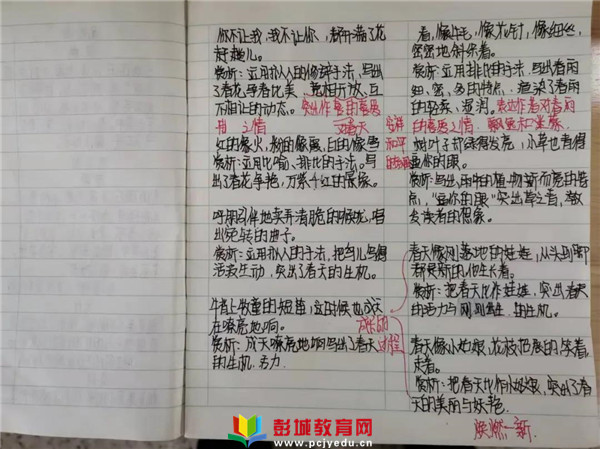 你不让我，我不让你，都开满了花
赶趟儿。
赏析：运用拟人的修辞手法，写出
了春花争着比美，竞相开放、互
不相让的动态。突出作者的喜爱
之情 对春天
红的像火，粉的像霞，白的像雪
赏析：运用比喻、排比的手法。写
出了春花争艳，万紫千红的景象。
呼朋引伴地卖弄清脆的喉咙，唱
出宛转的曲子。
赏析：运用拟人的手法，把鸟儿写得
活泼生动，突出了春天的生机。
牛背上牧童的短笛，这时候也成天
在嘹亮地响。
赏析：成天嘹亮地响写出了春天
的生机、活力
成长的
过程
看，像牛毛，像花针，像细丝，
密密地斜织着。
赏析：运用排比的手法，写出春雨
细、密、多的特点，渲染了春雨
的轻柔、湿润。表达作者对春雨
的喜爱之情。
树叶子却绿得发亮，小草也青得
逼你的眼。
赏析：写出雨中的植物
点，“逼你的眼”突出草之青，激
发读者的想象
春天像刚落地的娃娃，从头到脚
都是新的他生长着。
赏析：把春天比作娃娃，突出春天
的活力与 的生机。
春天像小姑娘，花枝招展的笑着，
走着。
赏析：把春天比作小姑娘，突出了春
天的美丽与妖艳。
焕然一新
彭城教育网
www.pcjyedu.cn